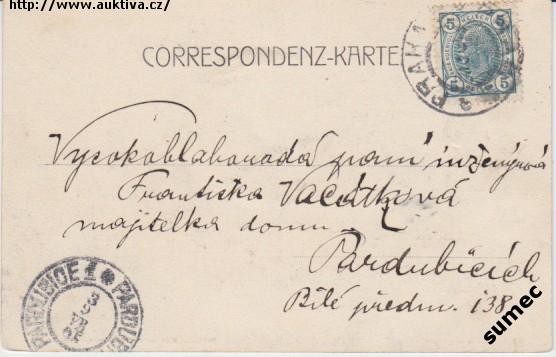 http://www.auktiva.cz/
CORRESPONDENZ-KARTE
5 5
5 5
PRAHA 1
Vysokoblahorodá paní inženýrová
Františka Vačátková
majitelka domu
Pardubicích
Bílé předm. 138
PARDUBICE 1
PARDUB
sumec